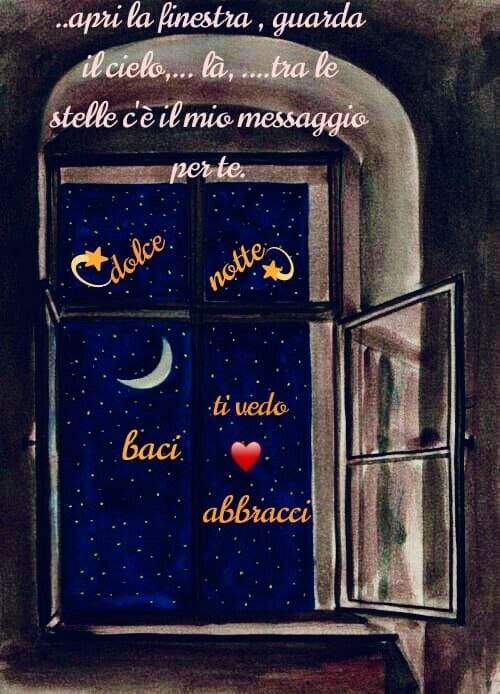 ..apri la finestra , guarda
il cielo,... là, ....tra le
stelle c'è il mio messaggio
per te.
dolce
notte
ti vedo
baci
abbracci